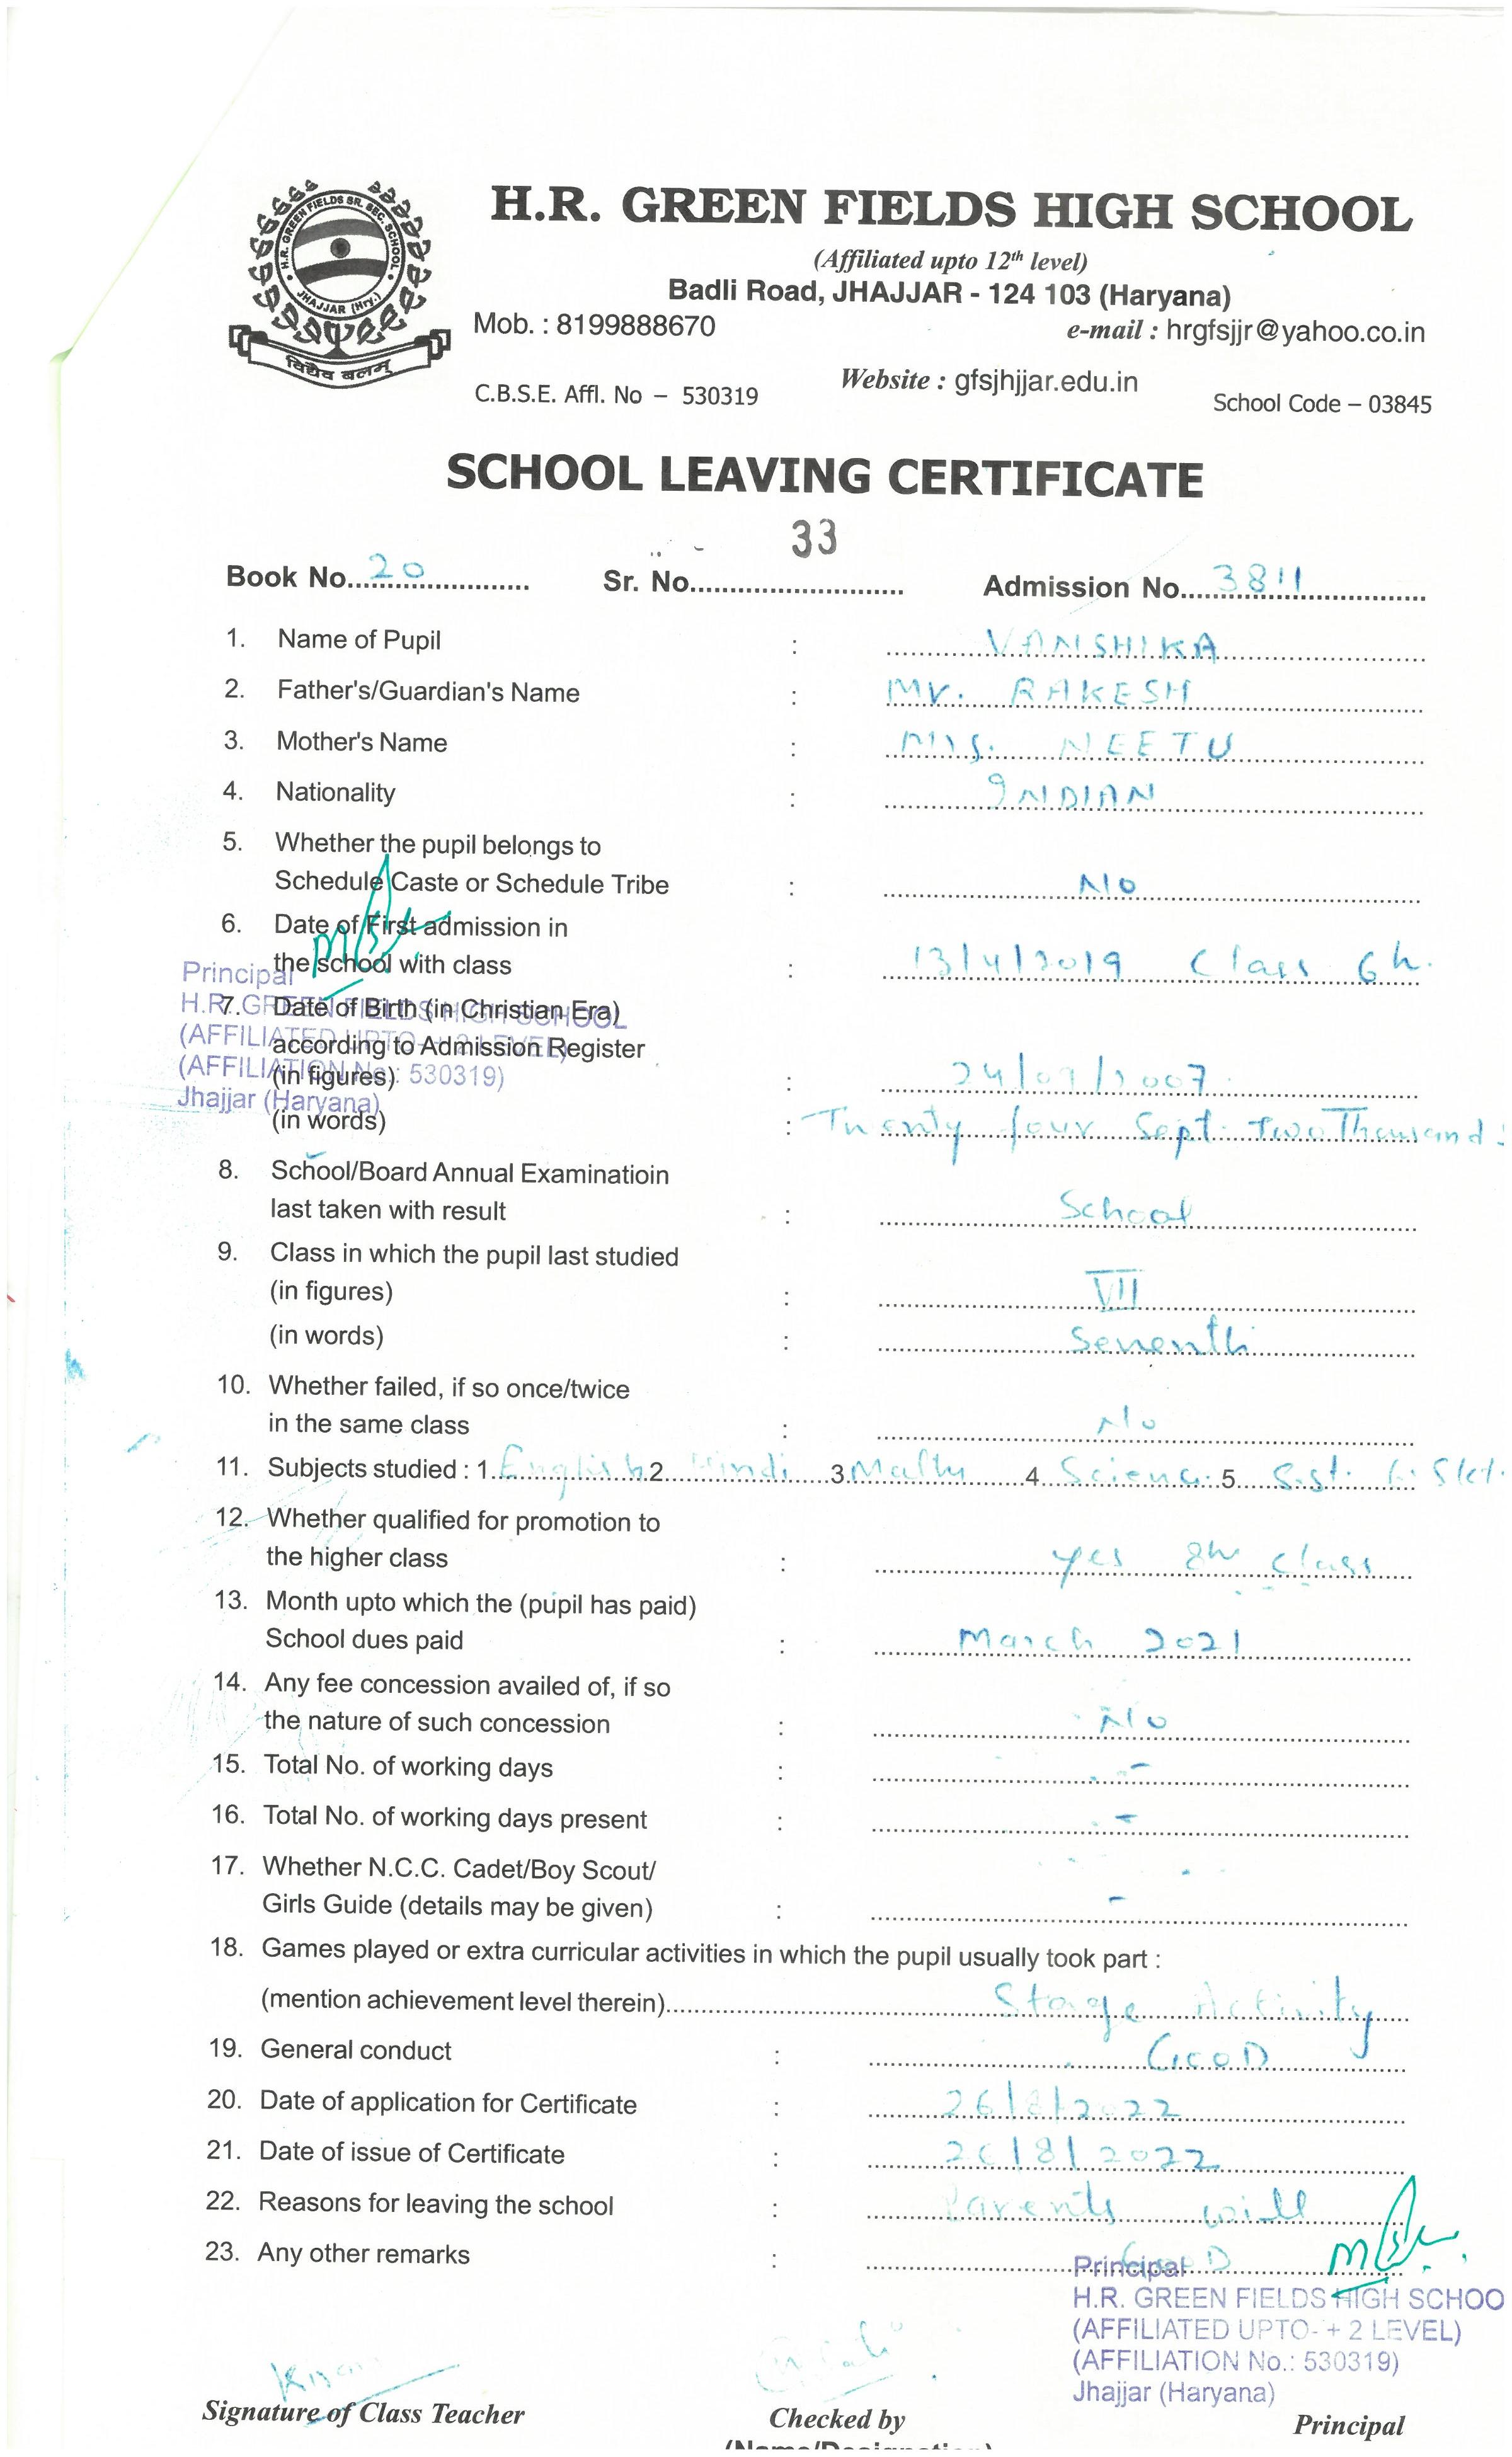 H.R. GREEN FIELDS SR. SEC. SCHOOL
JHAJJAR (Hry.)
विद्यैव बलम्
H.R. GREEN FIELDS HIGH SCHOOL
(Affiliated upto 12th level)
Badli Road, JHAJJAR - 124 103 (Haryana)
Mob. : 8199888670 e-mail : hrgfsjjr@yahoo.co.in
Website : gfsjhjjar.edu.in
C.B.S.E. Affl. No – 530319 School Code – 03845
SCHOOL LEAVING CERTIFICATE
33
Book No. 20 Sr. No. Admission No. 3811
1. Name of Pupil : VANSHIKA
2. Father's/Guardian's Name : Mr. RAKESH
3. Mother's Name : Mrs. NEETU
4. Nationality : INDIAN
5. Whether the pupil belongs to
Schedule Caste or Schedule Tribe : No
6. Date of First admission in
the school with class : 13/4/2019 Class 6th
Principal
H.R. GREEN FIELDS HIGH SCHOOL
(AFFILIATED UPTO- + 2 LEVEL)
(AFFILIATION No.: 530319)
Jhajjar (Haryana)
7. Date of Birth (in Christian Era)
according to Admission Register
(in figures) : 24/09/2007
(in words) : Twenty four Sept. Two Thousand
8. School/Board Annual Examinatioin
last taken with result : School
9. Class in which the pupil last studied
(in figures) : VII
(in words) : Seventh
10. Whether failed, if so once/twice
in the same class : No
11. Subjects studied : 1. English 2. Hindi 3. Maths 4. Science 5. S.st. 6. Skt.
12. Whether qualified for promotion to
the higher class : yes 8th class
13. Month upto which the (pupil has paid)
School dues paid : March 2021
14. Any fee concession availed of, if so
the nature of such concession : No
15. Total No. of working days : -
16. Total No. of working days present : -
17. Whether N.C.C. Cadet/Boy Scout/
Girls Guide (details may be given) : -
18. Games played or extra curricular activities in which the pupil usually took part :
(mention achievement level therein) Stage Activity
19. General conduct : GOOD
20. Date of application for Certificate : 26/8/2022
21. Date of issue of Certificate : 26/8/2022
22. Reasons for leaving the school : Parents will
23. Any other remarks : GOOD
Principal
H.R. GREEN FIELDS HIGH SCHOO
(AFFILIATED UPTO- + 2 LEVEL)
(AFFILIATION No.: 530319)
Jhajjar (Haryana)
Signature of Class Teacher Checked by Principal
(Name/Designation)